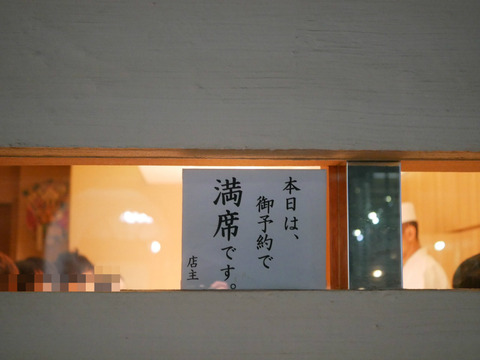 本日は、
御予約で
満席です。
店主